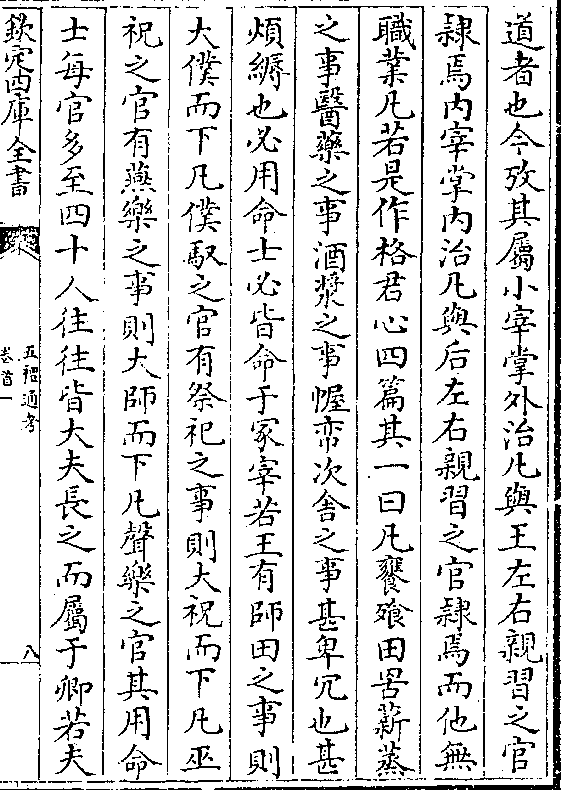 道者也今攷其屬小宰掌外治凡與王左右親習之官
隷焉内宰掌内治凡與后左右親習之官隷焉而他無
職業凡若是作格君心四篇其一曰凡饔飱田罟薪蒸
之事醫藥之事酒漿之事幄帟次舍之事甚卑冗也甚
煩縟也必用命士必皆命于冢宰若王有師田之事則
大僕而下凡僕馭之官有祭祀之事則大祝而下凡巫
祝之官有燕樂之事則大師而下凡聲樂之官其用命
士每官多至四十人往往皆大夫長之而屬于卿若夫
欽定四庫全書
五禮通考
卷首一
八